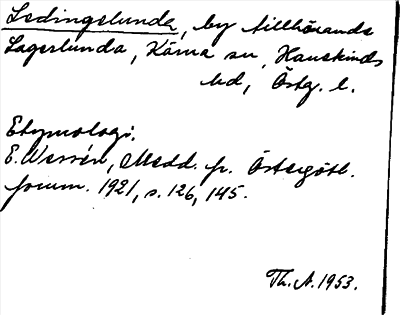 Ledingelunda, by tillhörande
Lagerlunda, Kärna sn, Hanekinds
hd, Östg. l.
Etymologi.
E. Wessén, Medd. fr. Östergötl.
fornm. 1921, s. 126, 145.
Th. A. 1953.